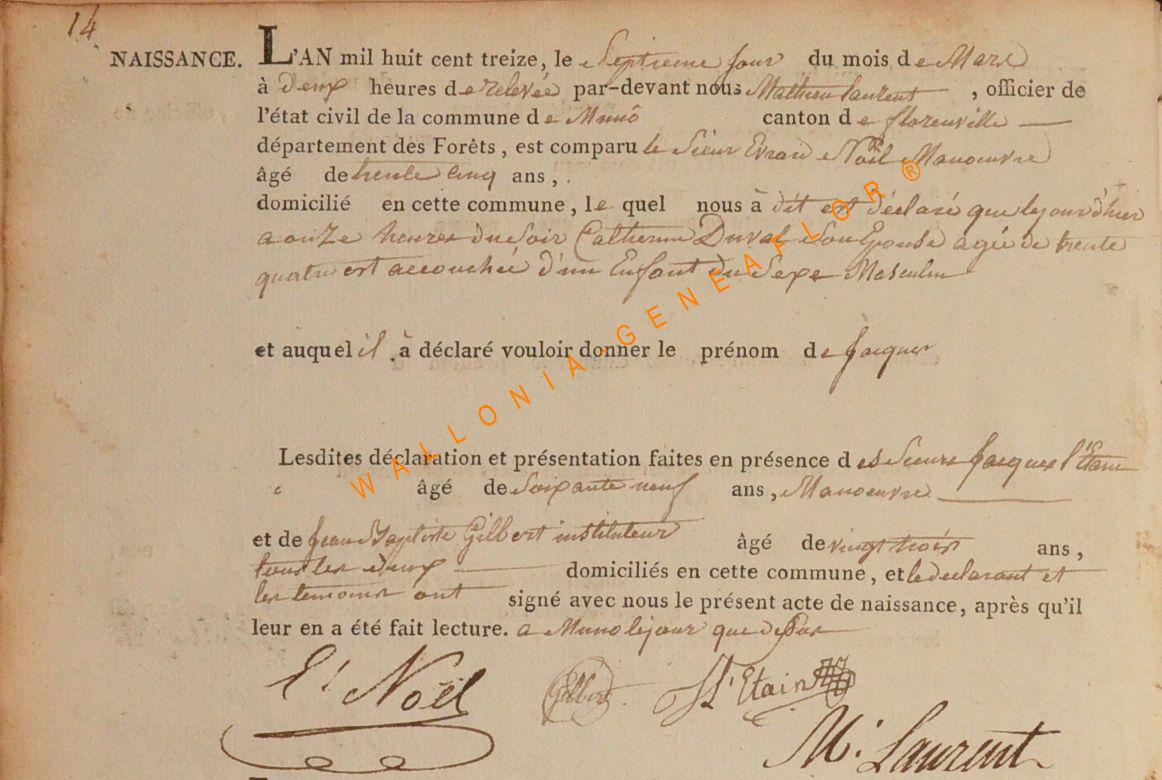 14
NAISSANCE. L'AN mil huit cent treize, le Septieme jour du mois de Mars
à Deux heures de relevée par-devant nous Mathieu Laurent, officier de
l'état civil de la commune de Muno canton de florenville
département des Forêts, est comparu le Sieur Noël Manoeuvre
âgé de trente cinq ans,
domicilié en cette commune, le quel nous à dit et déclaré que le jour d'hier
a onze heures du Soir Catherine Duval Son Epouse agée de trente
quatre est accouchée d'un Enfant du Sexe Masculin
et auquel il à déclaré vouloir donner le prénom de Jacques
Lesdites déclaration et présentation faites en présence des Sieurs Jacques l'Etain
âgé de Soixante neuf ans, Manoeuvre
et de Jean Baptiste Gilbert instituteur âgé de vingt trois ans,
tous les deux domiciliés en cette commune, et le declarant et
les temoins ont signé avec nous le présent acte de naissance, après qu'il
leur en a été fait lecture. a Muno le jour que dessus
Et Noël Gilbert Etain
M. Laurent
WALLONIA-GENEAFLOR ®